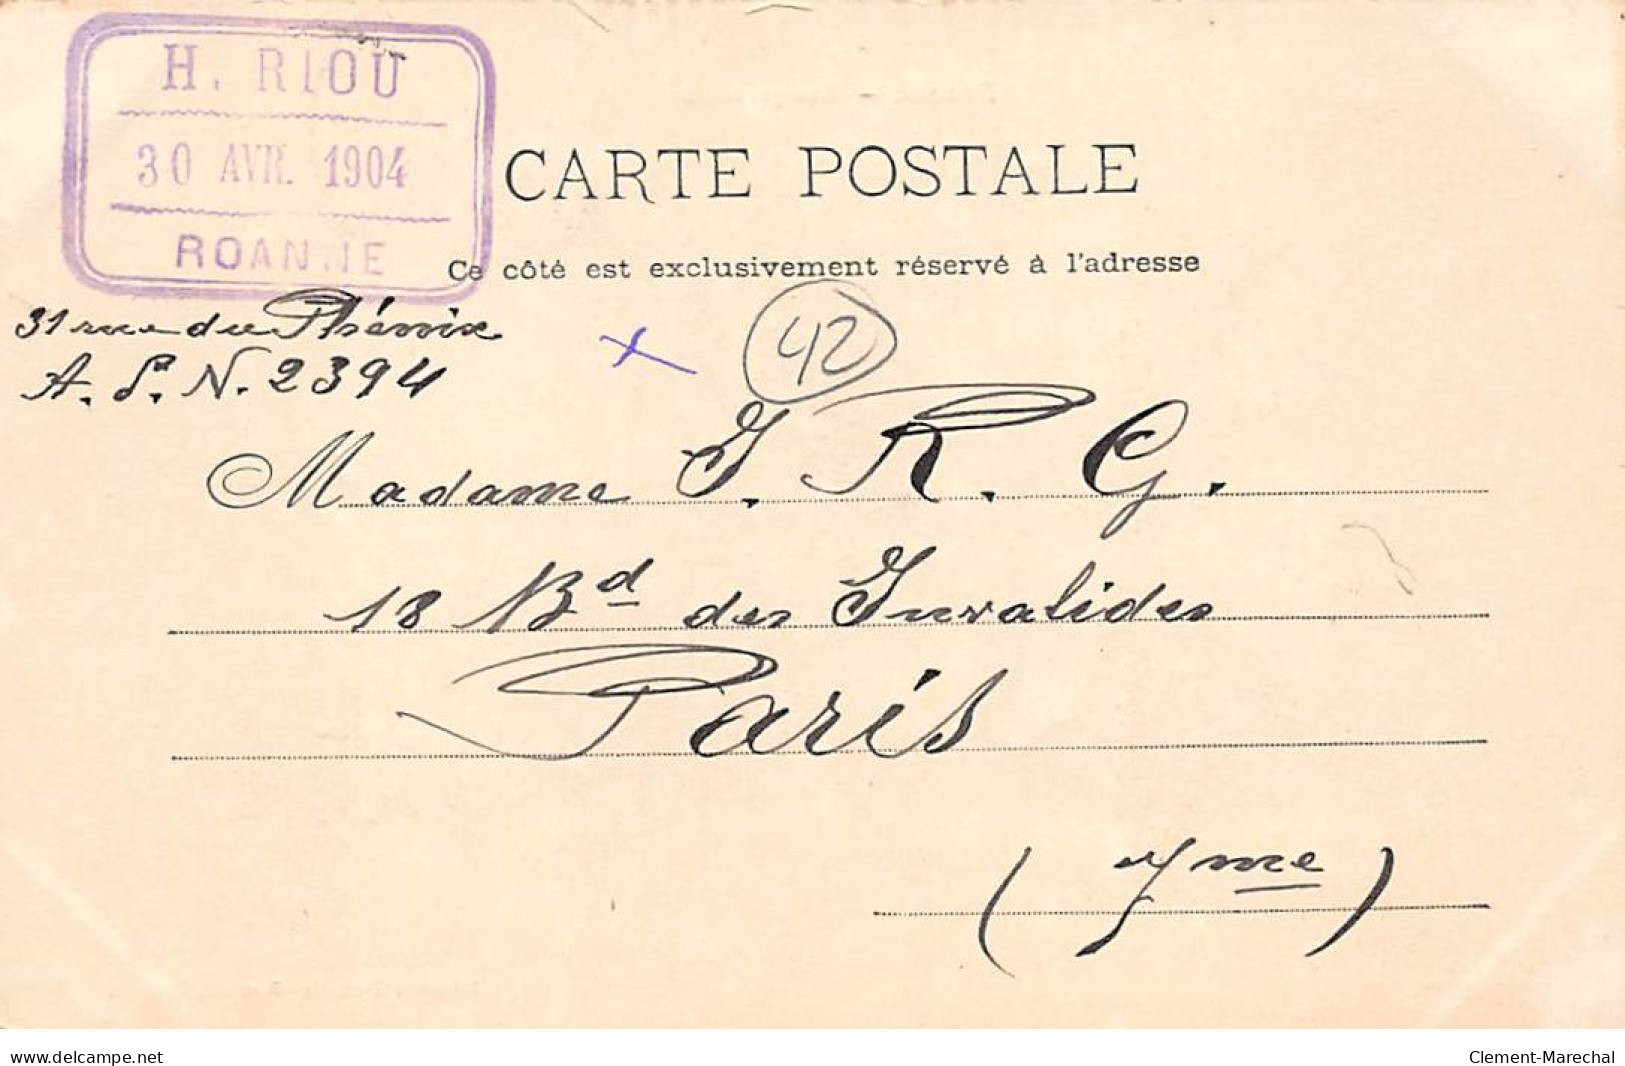 H. RIOU
30 AVR. 1904
ROANNE
CARTE POSTALE
Ce côté est exclusivement réservé à l'adresse
31 rue du Phénix
A. P. N. 2394
42
Madame J. R. G.
18 Bd des Invalides
Paris
(7me)
www.delcampe.net
Clement-Marechal